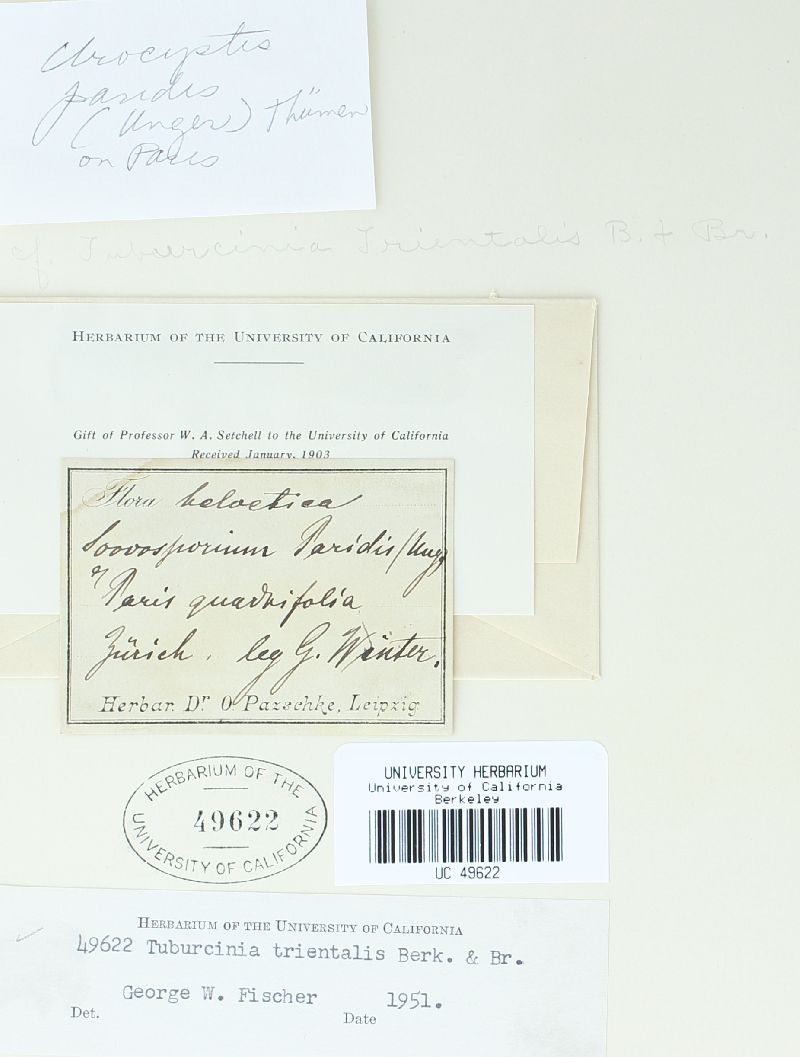 Urocystis
paridis
(Unger) Thümen
on Paris
cf. Tuburcinia Trientalis B. & Br.
HERBARIUM OF THE UNIVERSITY OF CALIFORNIA
Gift of Professor W. A. Setchell to the University of California
Received January, 1903
Flora helvetica
Soovosporium Paridis (Ung)
Paris quadrifolia
Zürich. leg G. Winter.
Herbar. Dr. O. Pazschke, Leipzig
HERBARIUM OF THE
49622
UNIVERSITY OF CALIFORNIA
UNIVERSITY HERBARIUM
University of California
Berkeley
UC 49622
HERBARIUM OF THE UNIVERSITY OF CALIFORNIA
49622 Tuburcinia trientalis Berk. & Br.
George W. Fischer 1951.
Det. Date